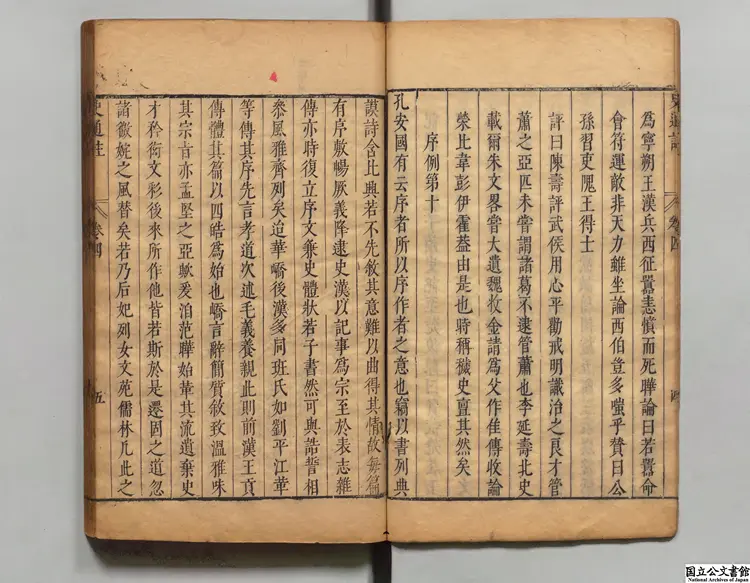 為寧朔王漢兵西征囂恚憤而死曄論曰若囂命
會符運敵非天力雖坐論西伯豈多嗤乎贊曰公
孫習吏隗王得士
評曰陳壽評武侯用心平勸戒明識治之良才管
蕭之亞匹未嘗謂諸葛不逮管蕭也李延壽北史
載爾朱文畧嘗大遺魏收金請為父作佳傳收論
榮比韋彭伊霍蓋由是也時稱穢史亶其然矣
序例第十
孔安國有云序者所以序作者之意也竊以書列典
謨詩含比興若不先敘其意難以曲得其情故每篇
有序敷暢厥義降逮史漢以記事為宗至於表志雜
傳亦時復立序文兼史體狀若子書然可與誥誓相
叅風雅齊列矣迨華嶠後漢多同班氏如劉平江革
等傳其序先言孝道次述毛義養親此則前漢王貢
傳體其篇以四皓為始也嶠言辭簡質敘致溫雅味
其宗旨亦孟堅之亞歟爰洎范曄始革其流遺棄史
才矜衒文彩後來所作他皆若斯於是遷固之道忽
諸徽婉之風替矣若乃后妃列女文苑儒林凡此之
史通註
卷四
五
卷四
国立公文書館
National Archives of Japan